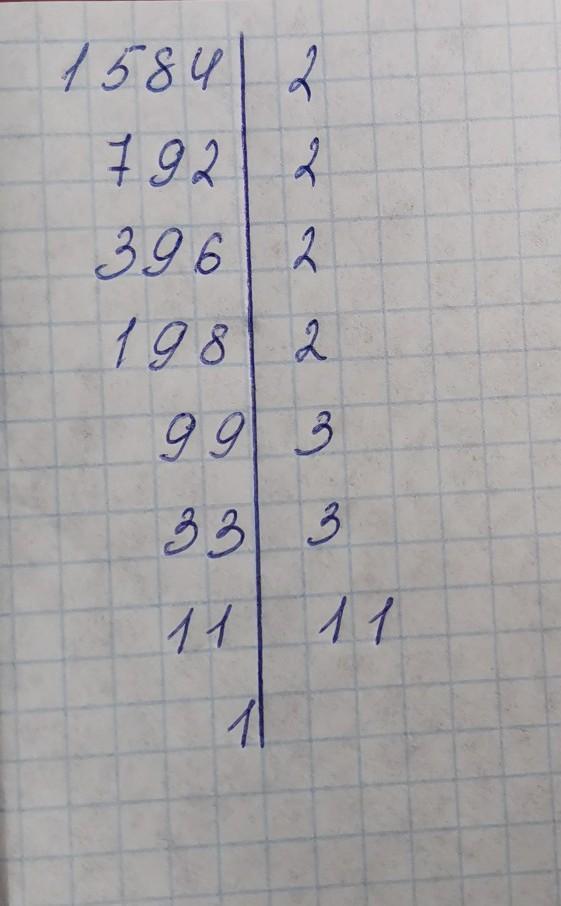 1584 | 2
792 | 2
396 | 2
198 | 2
99 | 3
33 | 3
11 | 11
1 |